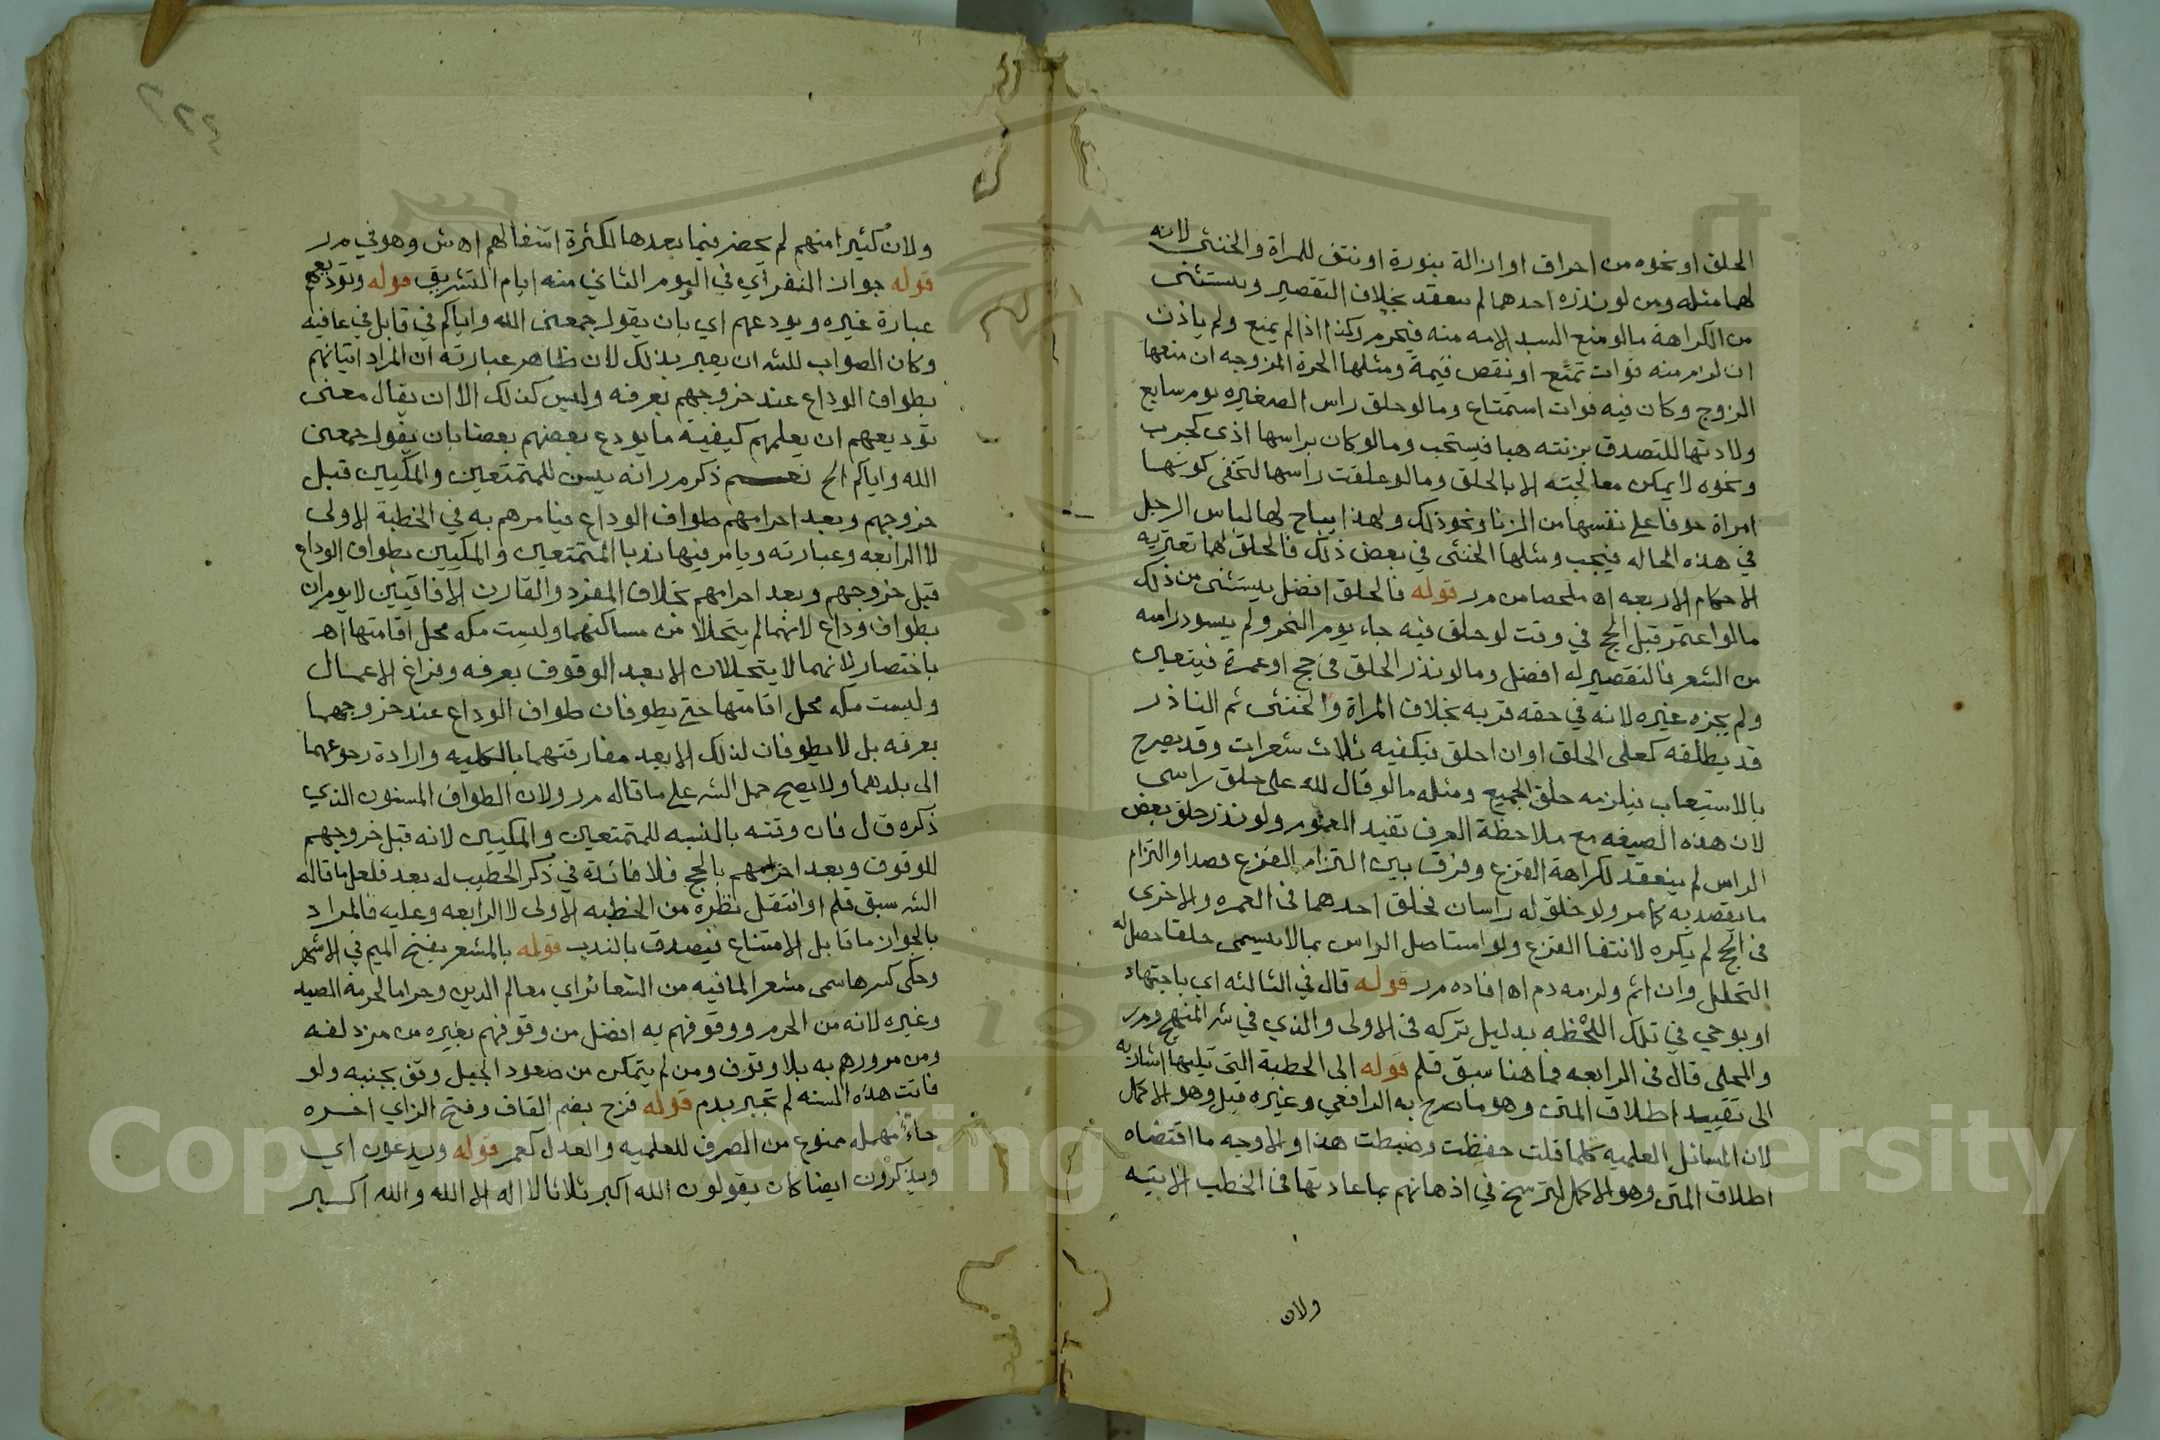 الحلق او نحوه من احراق او ازالة بنورة او نتف للمراة والخنثى لانه
لهما مثله ومن لو نذره احدهما لم ينعقد بخلاف التقصير ويستثنى
من الكراهة مالو منع السيد الامه منه فيحرم وكذا اذا لم يمنع ولم ياذن
ان لزم منه فوات تمتع او نقص قيمة ومثلها الحرة المزوجه ان منعها
الزوج وكان فيه فوات استمتاع ومالو حلق راس الصغيره يوم سابع
ولادتها للتصدق بزنته هبا فيستحب ومالو كان براسها اذى كجرب
ونحوه لا يمكن معالجته الا بالحلق ومالو حلقت راسها لتخفى كونها
امراة خوفا على نفسها من الزنا ونحو ذلك ولهذا يباح لها لباس الرجل
في هذه الحاله فيجب ومثلها الخنثى في بعض ذلك فالحلق لهما تعتريه
الاحكام الاربعه اه ملخصا من مر قوله فالحلق افضل يستثنى من ذلك
مالو اعتمر قبل الحج في وقت لو حلق فيه جاء يوم النحر ولم يسود راسه
من الشعر فالتقصير له افضل ومالو نذر الحلق في حج او عمرة فيتعين
ولم يجزه غيره لانه في حقه قربه بخلاف المراة والخنثى ثم الناذر
قد يطلقه كعلى الحلق او ان احلق فيكفيه ثلاث شعرات وقد يصرح
بالاستيعاب فيلزمه حلق الجميع ومثله مالو قال لله على حلق راسي
لان هذه الصيغه مع ملاحظة العرف تفيد العموم ولو نذر حلق بعض
الراس لم ينعقد لكراهة القزع وفرق بين التزام القزع قصدا والتزام
ما يقصد به كما مر ولو خلق له راسان فحلق احدهما في العمره والاخرى
في الحج لم يكره لانتفا القزع ولو استاصل الراس بما لا يسمى حلقا حصل له
التحلل وان اثم ولزمه دم اه افاده مر قوله قال في الثالثه اي باجتهاد
او بوحي في تلك اللحظه بدليل تركه في الاولى والذي في شر المنهج ومر
والمحلى قال في الرابعه فما هنا سبق قلم قوله الى الخطبة التي تليها اشار به
الى تقييد اطلاق المتن وهو ما صرح به الرافعي وغيره قبل وهو الاكمل
لان المسائل العلميه كلما قلت حفظت وضبطت هذا والاوجه ما اقتضاه
اطلاق المتن وهو الاكمل لترسخ في اذهانهم باعادتها في الخطب الاتيه
ولان
ولان كثيرا منهم لم يحضر فيما بعدها لكثرة اشغالهم اه ش وهو في مر
قوله جواز النفر اي في اليوم الثاني منه ايام التشريق قوله وتوديعهم
عبارة غيره ويودعهم اي بان يقول جمعني الله واياكم في قابل في عافيه
وكان الصواب للشه ان يعبر بذلك لان ظاهر عبارته ان المراد اتيانهم
بطواف الوداع عند خروجهم بعرفه وليس كذلك الا ان يقال معنى
توديعهم ان يعلمهم كيفية ما يودع بعضهم بعضا بان يقول جمعني
الله واياكم الخ نعم ذكر مر انه يسن للمتمتعين والمكيين قبل
خروجهم وبعد احرامهم طواف الوداع فيامرهم به في الخطبة الاولى
لا الرابعه وعبارته ويامر فيها ندبا المتمتعين والمكيين بطواف الوداع
قبل خروجهم وبعد احرامهم بخلاف المفرد والقارن الافاقيين لا يومران
بطواف وداع لانهما لم يتحللا من مساكنهما وليست مكه محل اقامتها اه
باختصار لانهما لا يتحللان الا بعد الوقوف بعرفه وفراغ الاعمال
وليست مكه محل اقامتها حتى يطوفان طواف الوداع عند خروجهما
بعرفه بل لا يطوفان لذلك الا بعد مفارقتهما بالكليه وارادة رجوعهما
الى بلدهما ولا يصح حمل الشه على ما قاله مر ولان الطواف المسنون الذي
ذكره قال فات وقته بالنسبه للمتمتعين والمكيين لانه قبل خروجهم
للوقوف وبعد احرامهم بالحج فلا فائدة في ذكر الخطيب له بعد فلعل ما قاله
الشه سبق قلم او انتقل نظره من الخطبه الاولى لا الرابعه وعليه فالمراد
بالجواز ما قابل الامتناع فيصدق بالندب قوله بالمشعر بفتح الميم في الاشهر
وحكى كسرها سمى مشعر الما فيه من الشعائر اي معالم الدين وحراما لحرمة الصيد
وغيره لانه من الحرم ووقوفهم به افضل من وقوفهم بغيره من مزدلفه
ومن مرورهم به بلا وقوف ومن لم يتمكن من صعود الجبل وقف بجنبه ولو
فاتت هذه السنه لم تجبر بدم قوله قزح بضم القاف وفتح الزاي اخره
حاء مهمله ممنوع من الصرف للعلميه والعدل كعمر قوله ويدعون اي
ويذكرون ايضا كان يقولون الله اكبر ثلاثا لا اله الا الله والله اكبر
Copyright © King Saud University